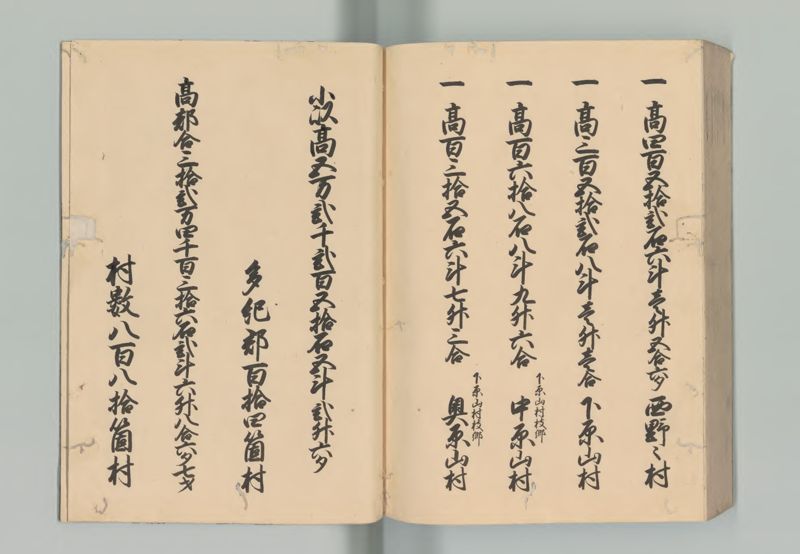 一 高四百五拾弐石六斗壱升五合六夕 西野々村
一 高三百五拾弐石八斗壱升壱合 下原山村
一 高百六拾八石八斗九升六合 下原山村枝郷 中原山村
一 高百三拾五石六斗七升三合 下原山村枝郷 奥原山村
小以高五万弐千弐百五拾石五斗弐升六夕
多紀郡百拾四箇村
高都合三拾弐万四千百三拾六石弐斗六升八合六夕七才
村数八百八拾箇村